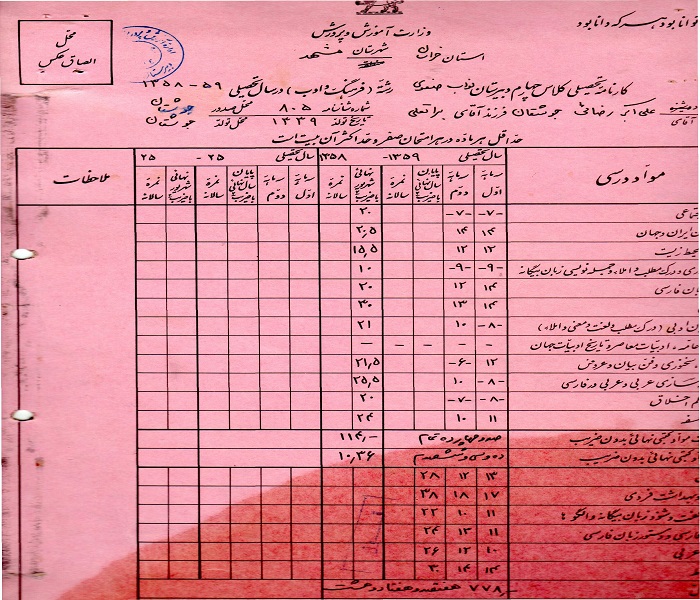 توانا بود هر که دانا بود
وزارت آموزش و پرورش
استان خراسان شهرستان مشهد
محل الصاق عکس
کارنامه تحصیلی کلاس چهارم دبیرستان نواب صفوی رشته (فرهنگ و ادب) در سال تحصیلی ۵۹-۱۳۵۸
آقای علی اکبر رضائی جوشقان فرزند آقای براتعلی شماره شناسنامه ۸۰۵ محل صدور جوشقان
تاریخ تولد ۱۳۳۹ محل تولد جوشقان
حداقل هر ماده در هر امتحان صفر و حداکثر آن بیست است
مواد درسی سال تحصیلی ۱۳۵۹-۱۳۵۸ سال تحصیلی ۲۵-۲۵ ملاحظات
سه ماهه اول سه ماهه دوم پایان سال نهائی با ضریب نمره سالانه نهائی شهریور با ضریب نمره سالانه سه ماهه اول سه ماهه دوم پایان سال نهائی با ضریب نمره سالانه نهائی شهریور با ضریب نمره سالانه
-۷- -۷- ۲۰
ایران و جهان ۱۴ ۱۴ ۲,۵
محیط زیست ۱۲ ۱۲ ۱۵,۵
درک مطلب و املاء و جمله نویسی زبان بیگانه -۹- -۹- ۱۰
فارسی ۱۴ ۱۲ ۲۰
۱۴ ۱۳ ۳۰
(درک مطلب و لغت و معنی و املاء) -۸- ۱۰ ۲۱
ادبیات معاصر و تاریخ ادبیات جهان - - - - -
سخنوری و فن بیان و عروض ۱۲ -۶- ۲۱,۵
عربی و عربی در فارسی -۸- ۱۰ ۲۵,۵
-۸- -۷- ۲۰
۱۱ ۱۰ ۲۴
مواد کتبی نهائی بدون ضریب صد و چهارده تمام ۱۱۴,-
کتبی نهائی بدون ضریب ده و سی و شش صدم ۱۰,۳۶
۱۳ ۱۲ ۲۸
بهداشت فردی ۱۷ ۱۸ ۳۸
زبان بیگانه و الگوها ۱۱ ۱۰ ۲۲
دستور زبان فارسی ۱۱ ۱۳ ۲۴
۱۰ ۱۲ ۲۶
۱۴ ۱۴ ۳۰
۷۷۸,- هفتصد و هفتاد و هشت